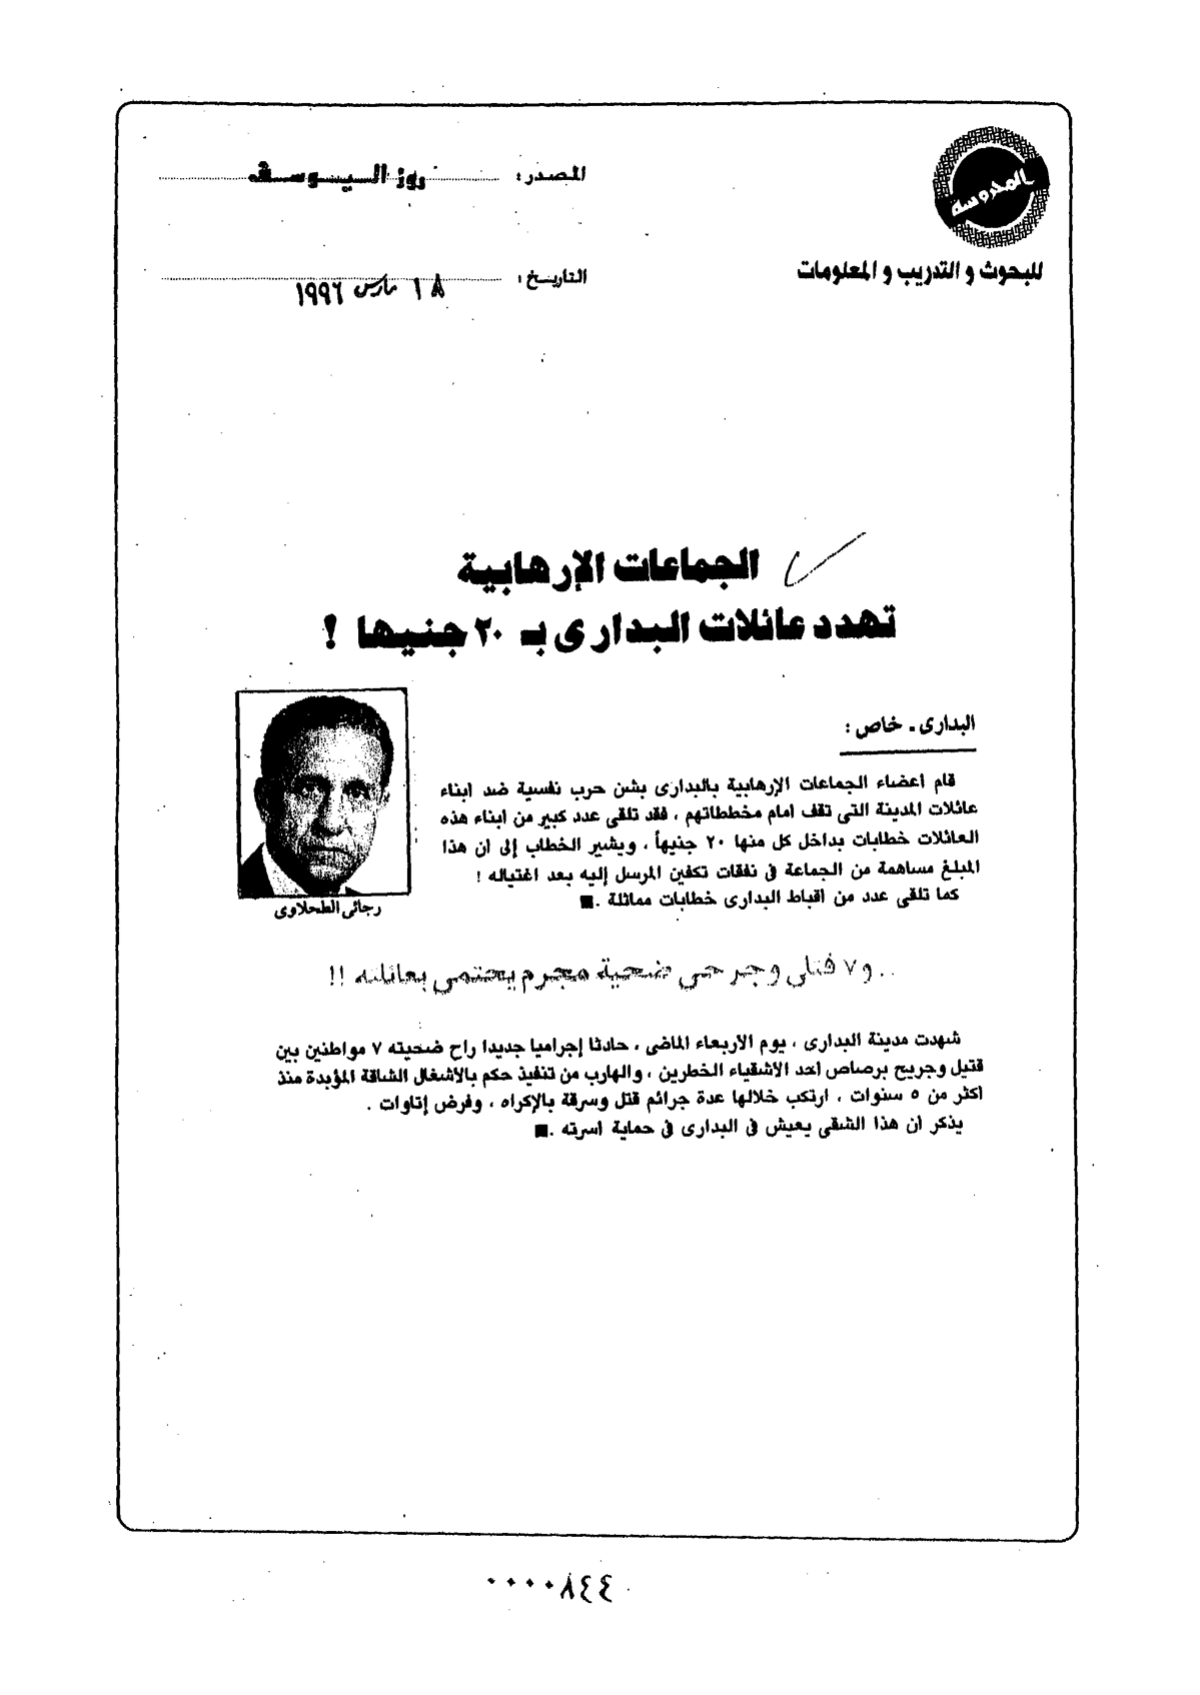 المحروسة
للبحوث و التدريب و المعلومات
المصدر: روز اليوسف
التاريخ: ١٨ مارس ١٩٩٦
الجماعات الإرهابية
تهدد عائلات البدارى بـ ٢٠ جنيها !
البدارى ـ خاص :
قام اعضاء الجماعات الإرهابية بالبدارى بشن حرب نفسية ضد ابناء
عائلات المدينة التى تقف امام مخططاتهم ، فقد تلقى عدد كبير من ابناء هذه
العائلات خطابات بداخل كل منها ٢٠ جنيهاً ، ويشير الخطاب إلى ان هذا
المبلغ مساهمة من الجماعة فى نفقات تكفين المرسل إليه بعد اغتياله !
كما تلقى عدد من اقباط البدارى خطابات مماثلة . ■
رجائى الطحلاوى
.. و٧ قتلى وجرحى ضحية مجرم يحتمى بعائلته !!
شهدت مدينة البدارى ، يوم الاربعاء الماضى ، حادثا إجراميا جديدا راح ضحيته ٧ مواطنين بين
قتيل وجريح برصاص احد الاشقياء الخطرين ، والهارب من تنفيذ حكم بالاشغال الشاقة المؤبدة منذ
اكثر من ٥ سنوات ، ارتكب خلالها عدة جرائم قتل وسرقة بالإكراه ، وفرض إتاوات .
يذكر ان هذا الشقى يعيش فى البدارى فى حماية اسرته . ■
٠٠٠٠٨٤٤